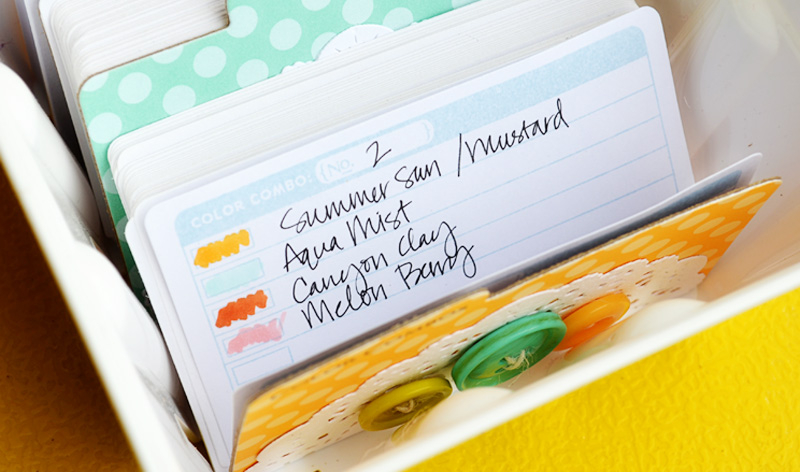 COLOR COMBO: No. 2
Summer Sun / Mustard
Aqua Mist
Canyon Clay
Melon Berry